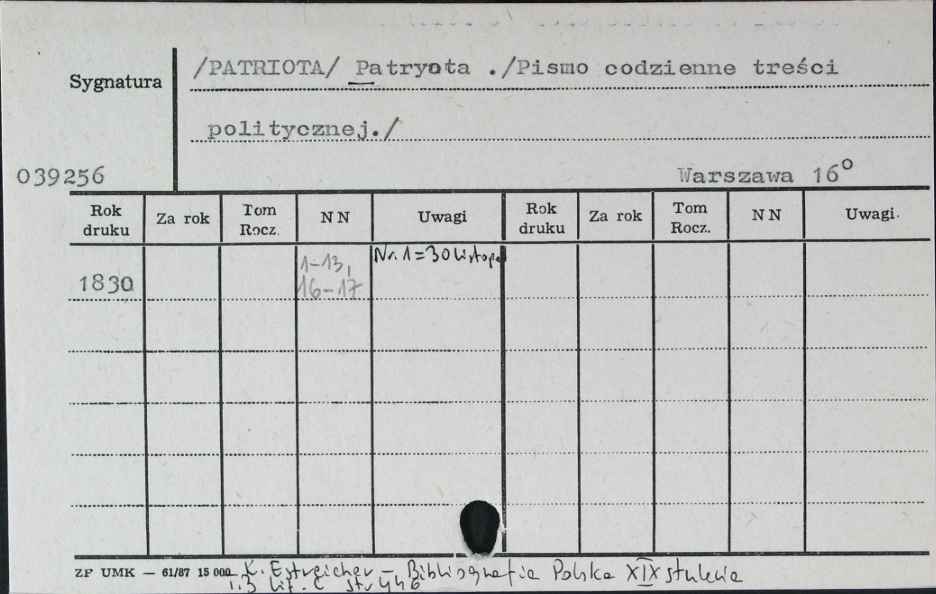 /PATRIOTA/ Patryota ./Pismo codzienne treści
Sygnatura
politycznej./
039256
Warszawa 16°
Rok druku Za rok Tom Rocz. NN Uwagi Rok druku Za rok Tom Rocz. NN Uwagi
1830 1-13, 16-17 Nr. 1=30 listopad
ZF UMK — 61/87 15 000 K. Estreicher - Bibliografia Polska XIX stulecia
t.3 lit. C str 446